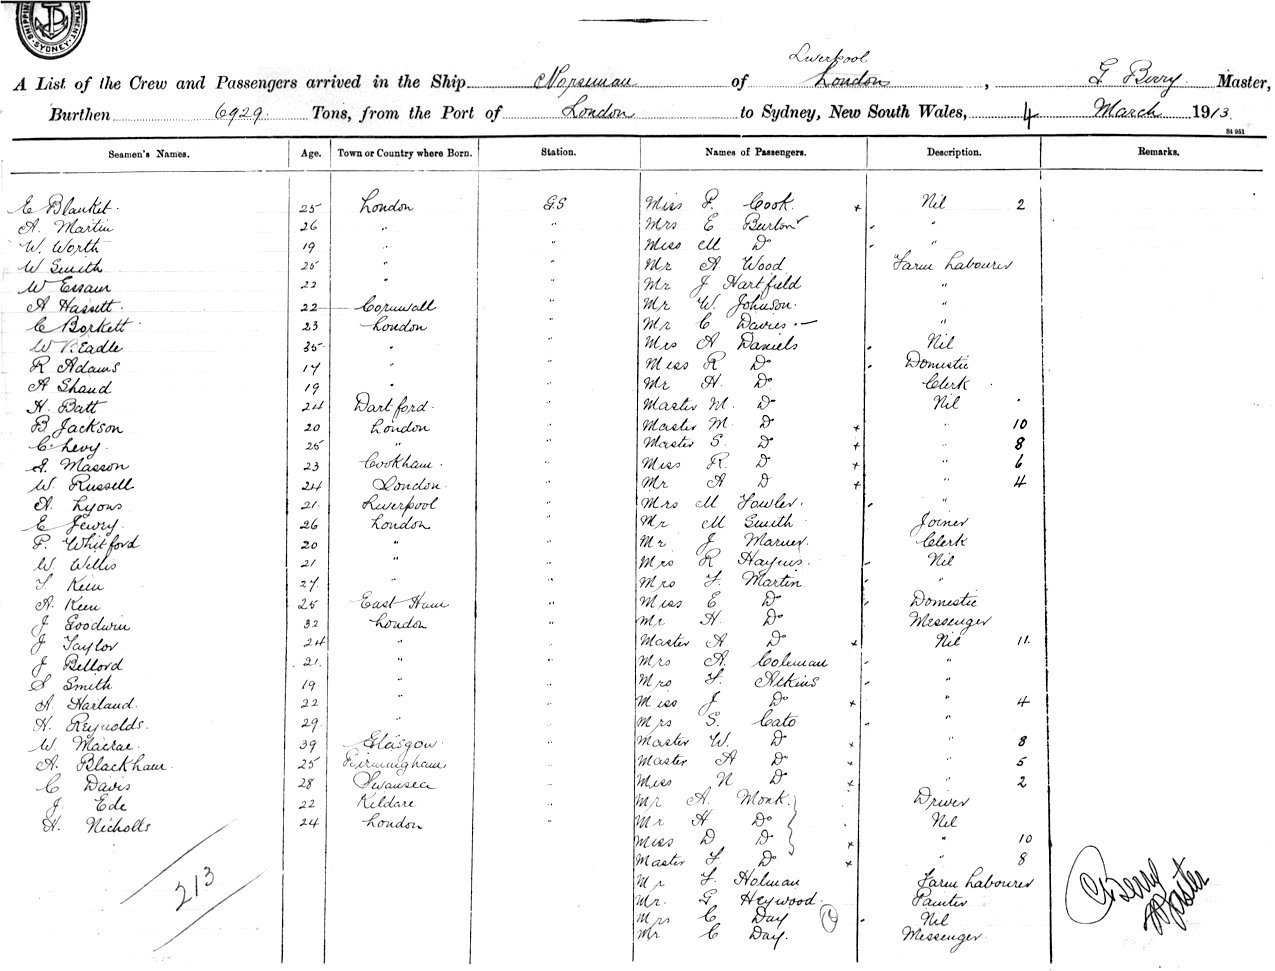 SHIPPING DEPARTMENT. SYDNEY
Liverpool
A List of the Crew and Passengers arrived in the Ship Norseman of London, G Berry Master,
Burthen 6929 Tons, from the Port of London to Sydney, New South Wales, 4 March 1913
St 951
Seamen's Names. Age. Town or Country where Born. Station. Names of Passengers. Description. Remarks.
E Blanket. 25 London G.S Miss F. Cook. + Nil 2
A. Martin 26 " " Mrs E Burton "
W. Worth 19 " " Miss M Do "
W Smith 25 " " Mr A Wood Farm Labourer
W Essam 22 " " Mr J Hartfield "
A Hassett. 22 Cornwall " Mr W. Johnson. "
C Borkett. 23 London " Mr C Davies. "
W P. Eadle 35 " " Mrs A Daniels Nil
R Adams 17 " " Miss R Do Domestic
A Shand 19 " " Mr H. Do Clerk
H. Batt 24 Dartford. " Master M. Do Nil
B Jackson 20 London " Master M Do + " 10
C. Levy. 25 " " Master S. Do + " 8
A. Masson 23 Cookham. " Miss R. Do + " 6
W. Russell 24 London. " Mr A Do + " 4
A. Lyons 21 Liverpool " Mrs M Fowler. "
E Jewry. 26 London " Mr M Smith Joiner
F. Whitford 20 " " Mr J Marner Clerk
W Willis 21 " " Mrs R Haynes. Nil
T Keen 27 " " Mrs F. Martin "
A. Keen 25 East Ham " Miss E Do Domestic
J Goodwin 32 London " Mr H. Do Messenger
J Taylor 24 " " Master A Do + Nil 11.
J Bellord 21. " " Mrs A. Coleman "
S Smith 19 " " Mrs F. Atkins "
A. Harland 22 " " Miss J Do + " 4
H. Reynolds. 29 " " Mrs S. Cato "
W. Macrae. 39 Glasgow. " Master W. Do + " 8
A. Blackham. 25 Birmingham " Master A Do + " 5
C Davis 28 Swansea " Miss N Do + " 2
J. Ede 22 Kildare " Mr A. Monk. Driver
H. Nicholls 24 London " Mr H Do Nil
Miss D Do + " 10
Master F Do + " 8
213 Mr F. Holman Farm Labourer
Mr. G Heywood. Painter
Mrs C Day Nil
Mr C Day. Messenger.
G Berry
Master